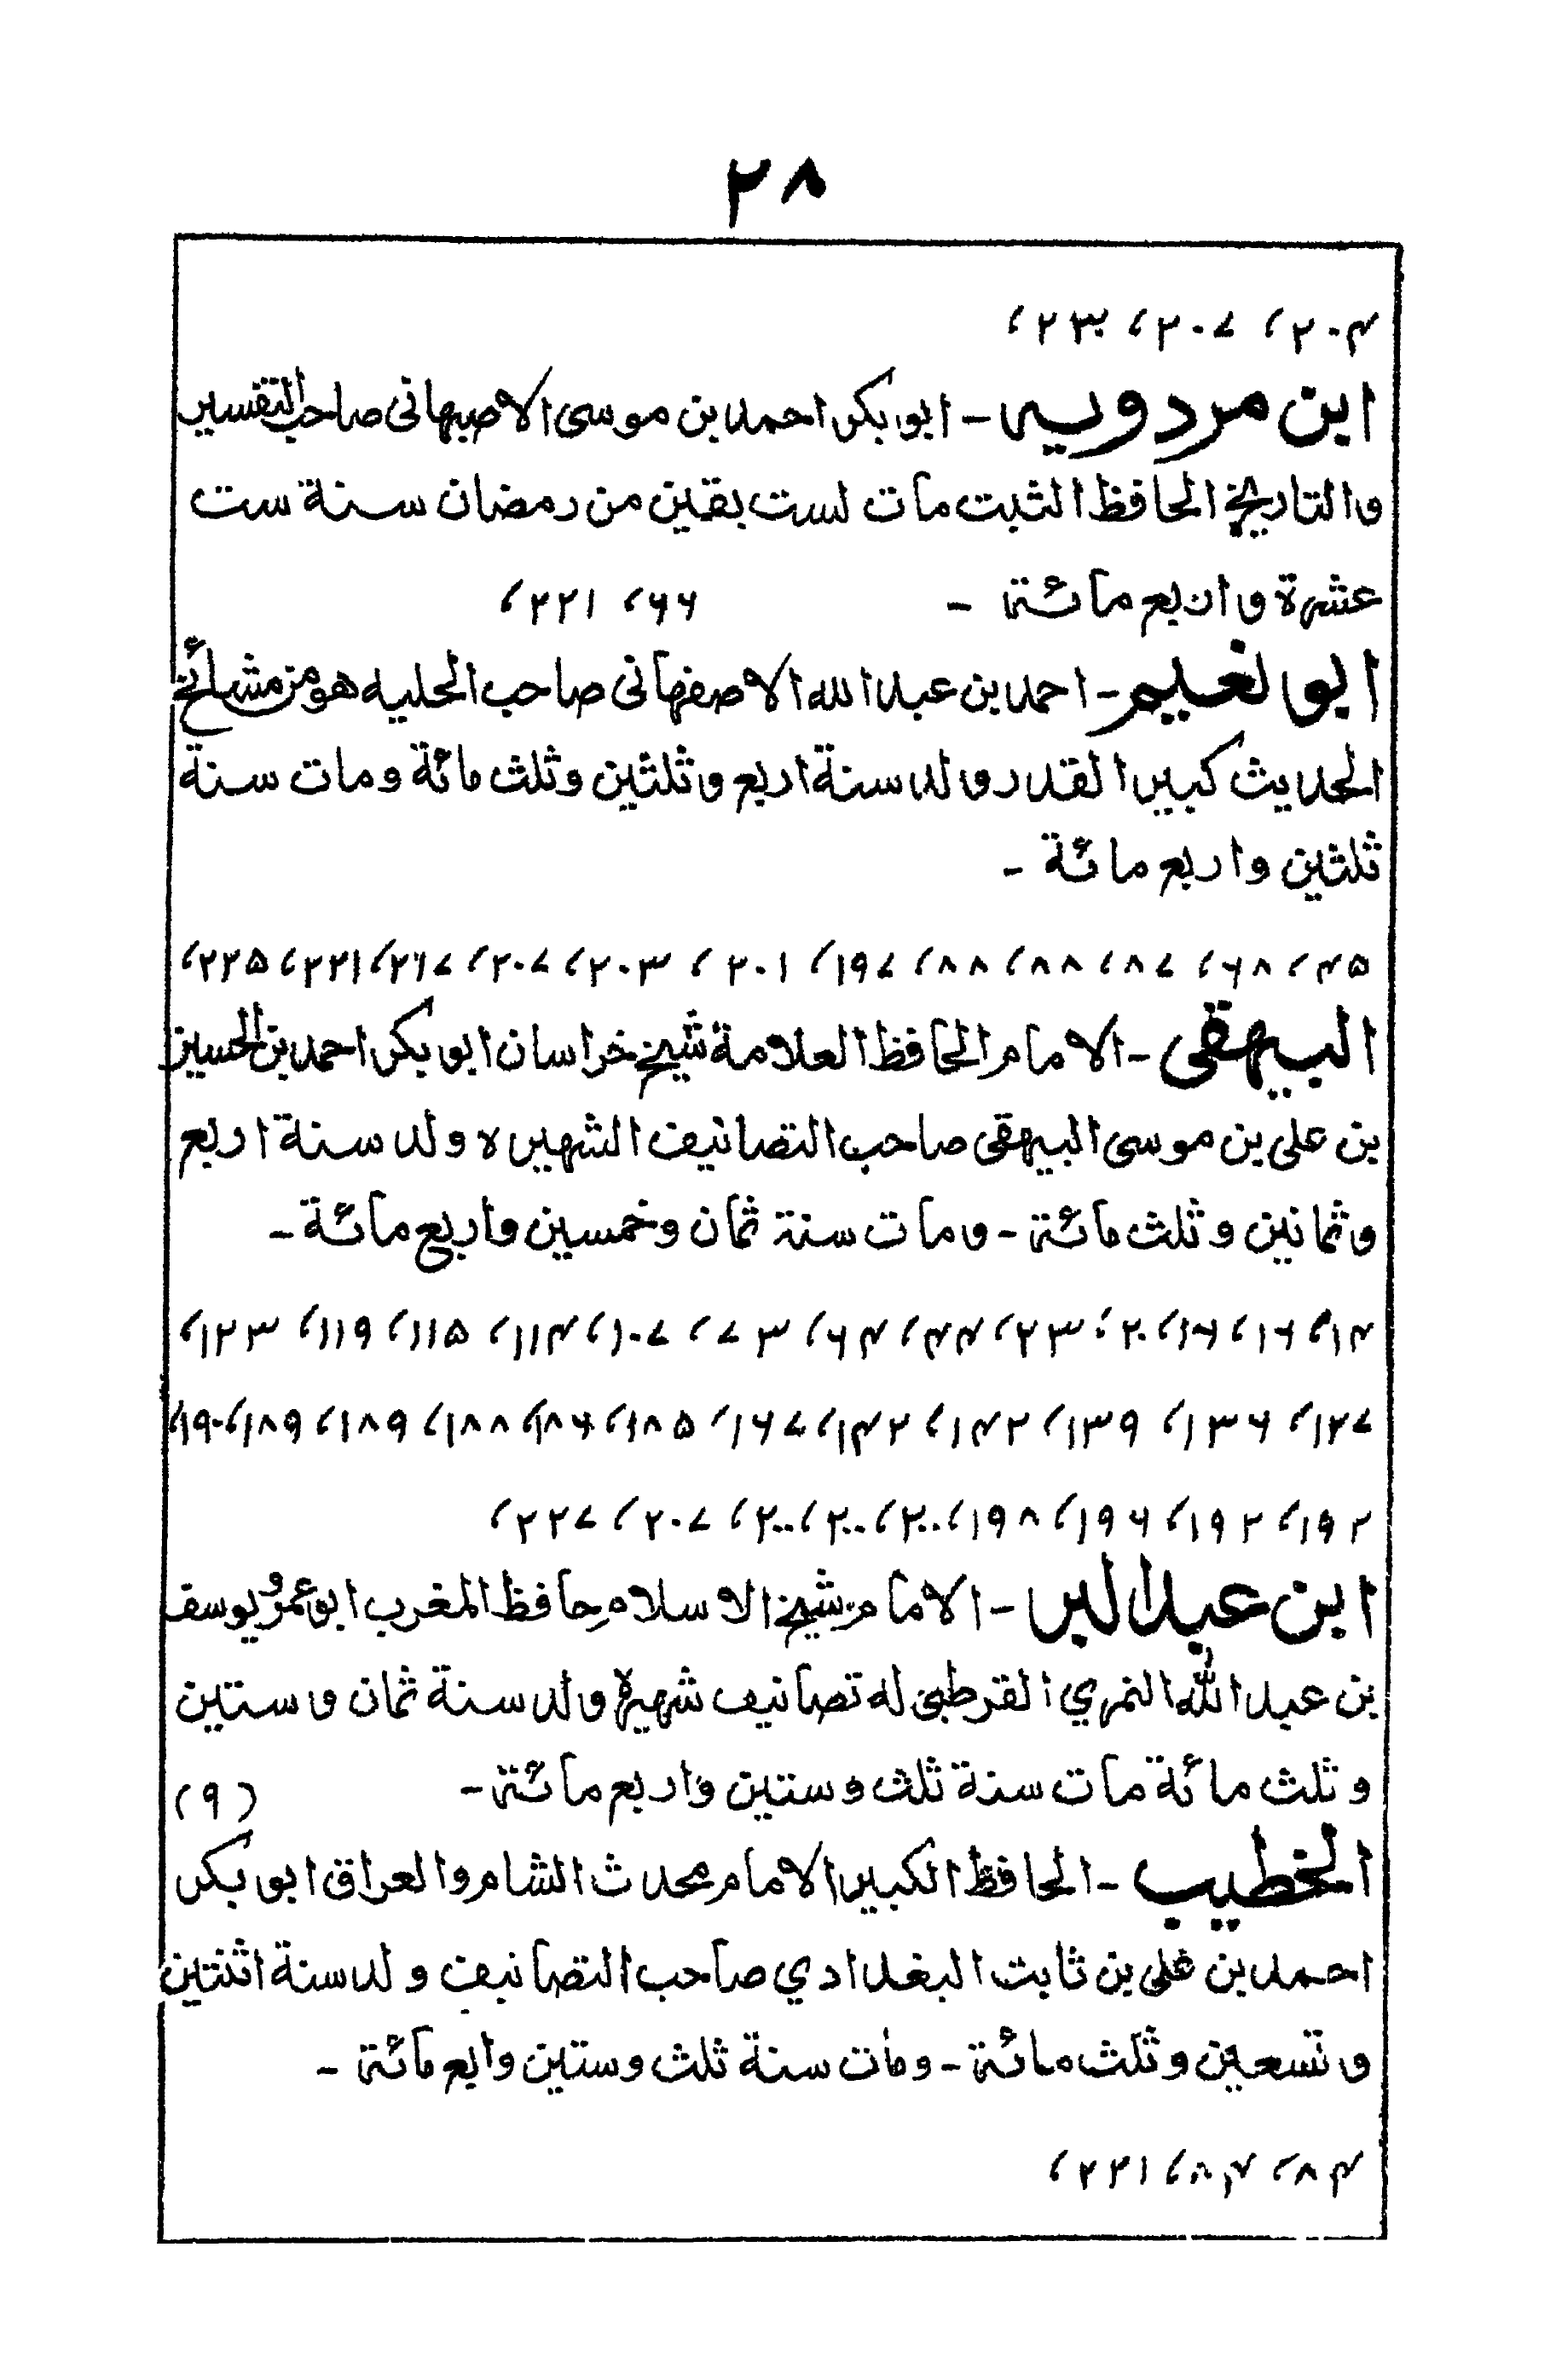 ۲۸
۲۰۴، ۲۰۷، ۲۳۰،
ابن مردویه - ابو بکر احمد بن موسی الاصبهانی صاحب التفسیر
والتاریخ الحافظ الثبت مات لست بقین من رمضان سنة ست
عشرة واربع مائة - ۶۶، ۲۲۱،
ابو نعیم - احمد بن عبد الله الاصفهانی صاحب الحلیه هو من مشائخ
الحدیث کبیر القدر ولد سنة اربع وثلثین وثلث مائة ومات سنة
ثلثین واربع مائة -
۴۵، ۶۸، ۸۷، ۸۸، ۸۸، ۱۹۷، ۲۰۱، ۲۰۳، ۲۰۷، ۲۱۷، ۲۲۱، ۲۲۵،
البیهقی - الامام الحافظ العلامة شیخ خراسان ابو بکر احمد بن الحسین
بن علی بن موسی البیهقی صاحب التصانیف الشهیره ولد سنة اربع
وثمانین وثلث مائة - ومات سنة ثمان وخمسین واربع مائة -
۱۴، ۱۶، ۱۶، ۲۰، ۲۳، ۴۴، ۶۴، ۷۳، ۱۰۷، ۱۱۴، ۱۱۵، ۱۱۹، ۱۲۳،
۱۲۷، ۱۳۶، ۱۳۹، ۱۴۲، ۱۴۲، ۱۶۷، ۱۸۵، ۱۸۶، ۱۸۸، ۱۸۹، ۱۸۹، ۱۹۰،
۱۹۲، ۱۹۲، ۱۹۶، ۱۹۸، ۲۰۰، ۲۰۰، ۲۰۰، ۲۰۷، ۲۲۷،
ابن عبد البر - الامام شیخ الاسلام حافظ المغرب ابو عمر یوسف
بن عبد الله النمري القرطبی له تصانیف شهیرة ولد سنة ثمان وستین
وثلث مائة مات سنة ثلث وستین واربع مائة - (۹)
الخطیب - الحافظ الکبیر الامام محدث الشام والعراق ابو بکر
احمد بن علی بن ثابت البغدادي صاحب التصانیف ولد سنة اثنتین
وتسعین وثلث مائة - ومات سنة ثلث وستین وابع مائة -
۸۴، ۸۷، ۲۲۱،